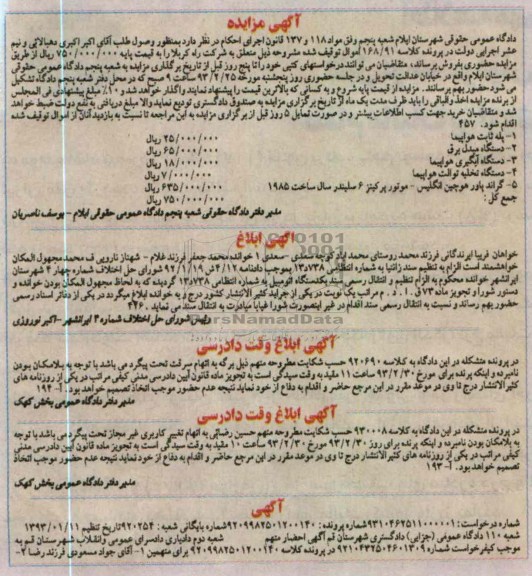 آگهی مزایده
دادگاه عمومی حقوقی شهرستان ایلام شعبه پنجم وفق مواد ۱۱۸ و ۱۳۷ قانون اجرای احکام در نظر دارد بمنظور وصول طلب آقای اکبر اکبری دهبالائی و نیم
عشر اجرایی دولت در پرونده کلاسه ۱۶۸/۹۱ اموال توقیف شده مشروحه ذیل متعلق به شرکت راه کربلا را به قیمت پایه ۷۵۰/۰۰۰/۰۰۰ ریال از طریق
مزایده حضوری بفروش برساند، متقاضیان می توانند درخواستهای کتبی خود را تا پنج روز قبل از تاریخ برگزاری مزایده به شعبه پنجم دادگاه عمومی حقوقی
شهرستان ایلام واقع در خیابان عدالت تحویل و در جلسه حضوری روز پنجشنبه مورخه ۹۳/۲/۲۵ ساعت ۹ صبح که در محل دفتر شعبه پنجم دادگاه تشکیل
می شود حضور بهم برسانند. مزایده از قیمت پایه شروع و به کسانی که بالاترین قیمت را پیشنهاد نمایند واگذار خواهد شد و ۱۰٪ مبلغ پیشنهادی فی المجلس
از برنده مزایده اخذ و الباقی را باید ظرف مدت یک ماه از تاریخ برگزاری مزایده به صندوق دادگستری تودیع نماید والا مبلغ دریافتی به نفع دولت ضبط خواهد
شد و متقاضیان خرید جهت کسب اطلاعات بیشتر و در صورت تمایل ۵ روز قبل از برگزاری مزایده به این مراجعه تا نسبت به بازدید آنان از اموال توقیف شده
اقدام شود. ۴۵۷
۱- پله ثابت هواپیما ۲۵/۰۰۰/۰۰۰ ریال
۲- دستگاه مبدل برق ۶۵/۰۰۰/۰۰۰ ریال
۳- دستگاه آبگیری هواپیما ۱۸/۰۰۰/۰۰۰ ریال
۴- دستگاه تخلیه توالت هواپیما ۷/۰۰۰/۰۰۰ ریال
۵- گراند پاور هوچین انگلیس - موتور پرکینز ۶ سیلندر سال ساخت ۱۹۸۵ ۶۳۵/۰۰۰/۰۰۰ ریال
جمع کل: ۷۵۰/۰۰۰/۰۰۰ ریال
مدیر دفتر دادگاه حقوقی شعبه پنجم دادگاه عمومی حقوقی ایلام - یوسف ناصریان
آگهی ابلاغ
خواهان فریبا ایرندگانی فرزند محمد روستای محمد اباد کوچه سعدی -سعدی ۱ خوانده محمد جعفر فرزند غلام - شهناز نارویی ف محمد مجهول المکان
خواهشمند است الزام به تنظیم سند زانتیا به شماره انتظامی ۱۳۸د۷۳ بموجب دادنامه ۴/۱۷ش ۹۲/۱/۱۹ شورای حل اختلاف شماره چهار ۴ شهرستان
ایرانشهر خوانده محکوم به الزام تنظیم و انتقال رسمی سند یکدستگاه اتومبیل به شماره انتظامی ۱۳۸د۷۳ گردیده که به لحاظ مجهول المکان بودن خوانده و
دستور شورا و تجویز ماده ۷۳ ق. ا . د . م مراتب یک نوبت در یکی از جراید کثیر الانتشار کشور درج و به خوانده ابلاغ میگردد در یکی از دفاتر اسناد رسمی
حضور بهم رساند و نسبت به انتقال رسمی سند اقدام در غیر اینصورت شورا قیابا مبادرت به انتقال سند می نماید ۴۴۶
رئیس شورای حل اختلاف شماره ۴ ایرانشهر -اکبر نوروزی
ParsNamadData
آگهی ابلاغ وقت دادرسی
در پرونده متشکله در این دادگاه به کلاسه ۹۲۰۶۹۰ حسب شکایت مطروحه متهم ذیل برگه به اتهام سرقت تحت پیگرد می باشد با توجه به بلامکان بودن
نامبرده و اینکه پرنده برای مورخ ۹۳/۲/۳۰ ساعت ۱۱ مقید به وقت رسیدگی است به تجویز ماده قانون آیین دادرسی مدنی کیفی مراتب در یکی از روزنامه های
کثیرالانتشار درج تا وی در موعد مقرر در این مرجع حاضر و اقدام به دفاع از خود نماید نتیجه عدم حضور موجب اتخاذ تصمیم خواهد بود. آ-۱۹۴
مدیر دفتر دادگاه عمومی بخش کهک
آگهی ابلاغ وقت دادرسی
در پرونده متشکله در این دادگاه به کلاسه ۹۳۰۰۰۸ حسب شکایت مطروحه متهم حسین رضائی به اتهام تغییر کاربری غیر مجاز تحت پیگرد می باشد با توجه
به بلامکان بودن نامبرده و اینکه پرنده برای روز ۹۳/۲/۳۰ مورخ ۹۳/۲/۳۰ ساعت ۱۰ مقید به وقت رسیدگی است به تجویز ماده قانون آیین دادرسی مدنی
کیفی مراتب در یکی از روزنامه های کثیرالانتشار درج تا وی در موعد مقرر در این مرجع حاضر و اقدام به دفاع از خود نماید نتیجه عدم حضور موجب اتخاذ
تصمیم خواهد بود. آ- ۱۹۳
مدیر دفتر دادگاه عمومی بخش کهک
آگهی
شماره درخواست: ۹۳۱۰۴۶۲۵۱۱۰۰۰۰۰۱ شماره پرونده: ۹۲۰۹۹۸۲۵۰۱۲۰۰۱۴۰ شماره بایگانی شعبه: ۹۲۰۲۵۴ تاریخ تنظیم ۱۳۹۳/۰۱/۱۱
شعبه ۱۱۰ دادگاه عمومی (جزایی) دادگستری شهرستان قم آگهی احضار متهم شعبه دوم دادیاری دادسرای عمومی وانقلاب شهرستان قم به
موجب کیفرخواست شماره ۹۲۱۰۴۳۲۵۰۴۶۰۱۳۰۹ در پرونده کلاسه ۹۲۰۹۹۸۲۵۰۱۲۰۰۱۴۰ برای متهمین ۱- آقای جواد مسعودی فرزند رضا ۲-